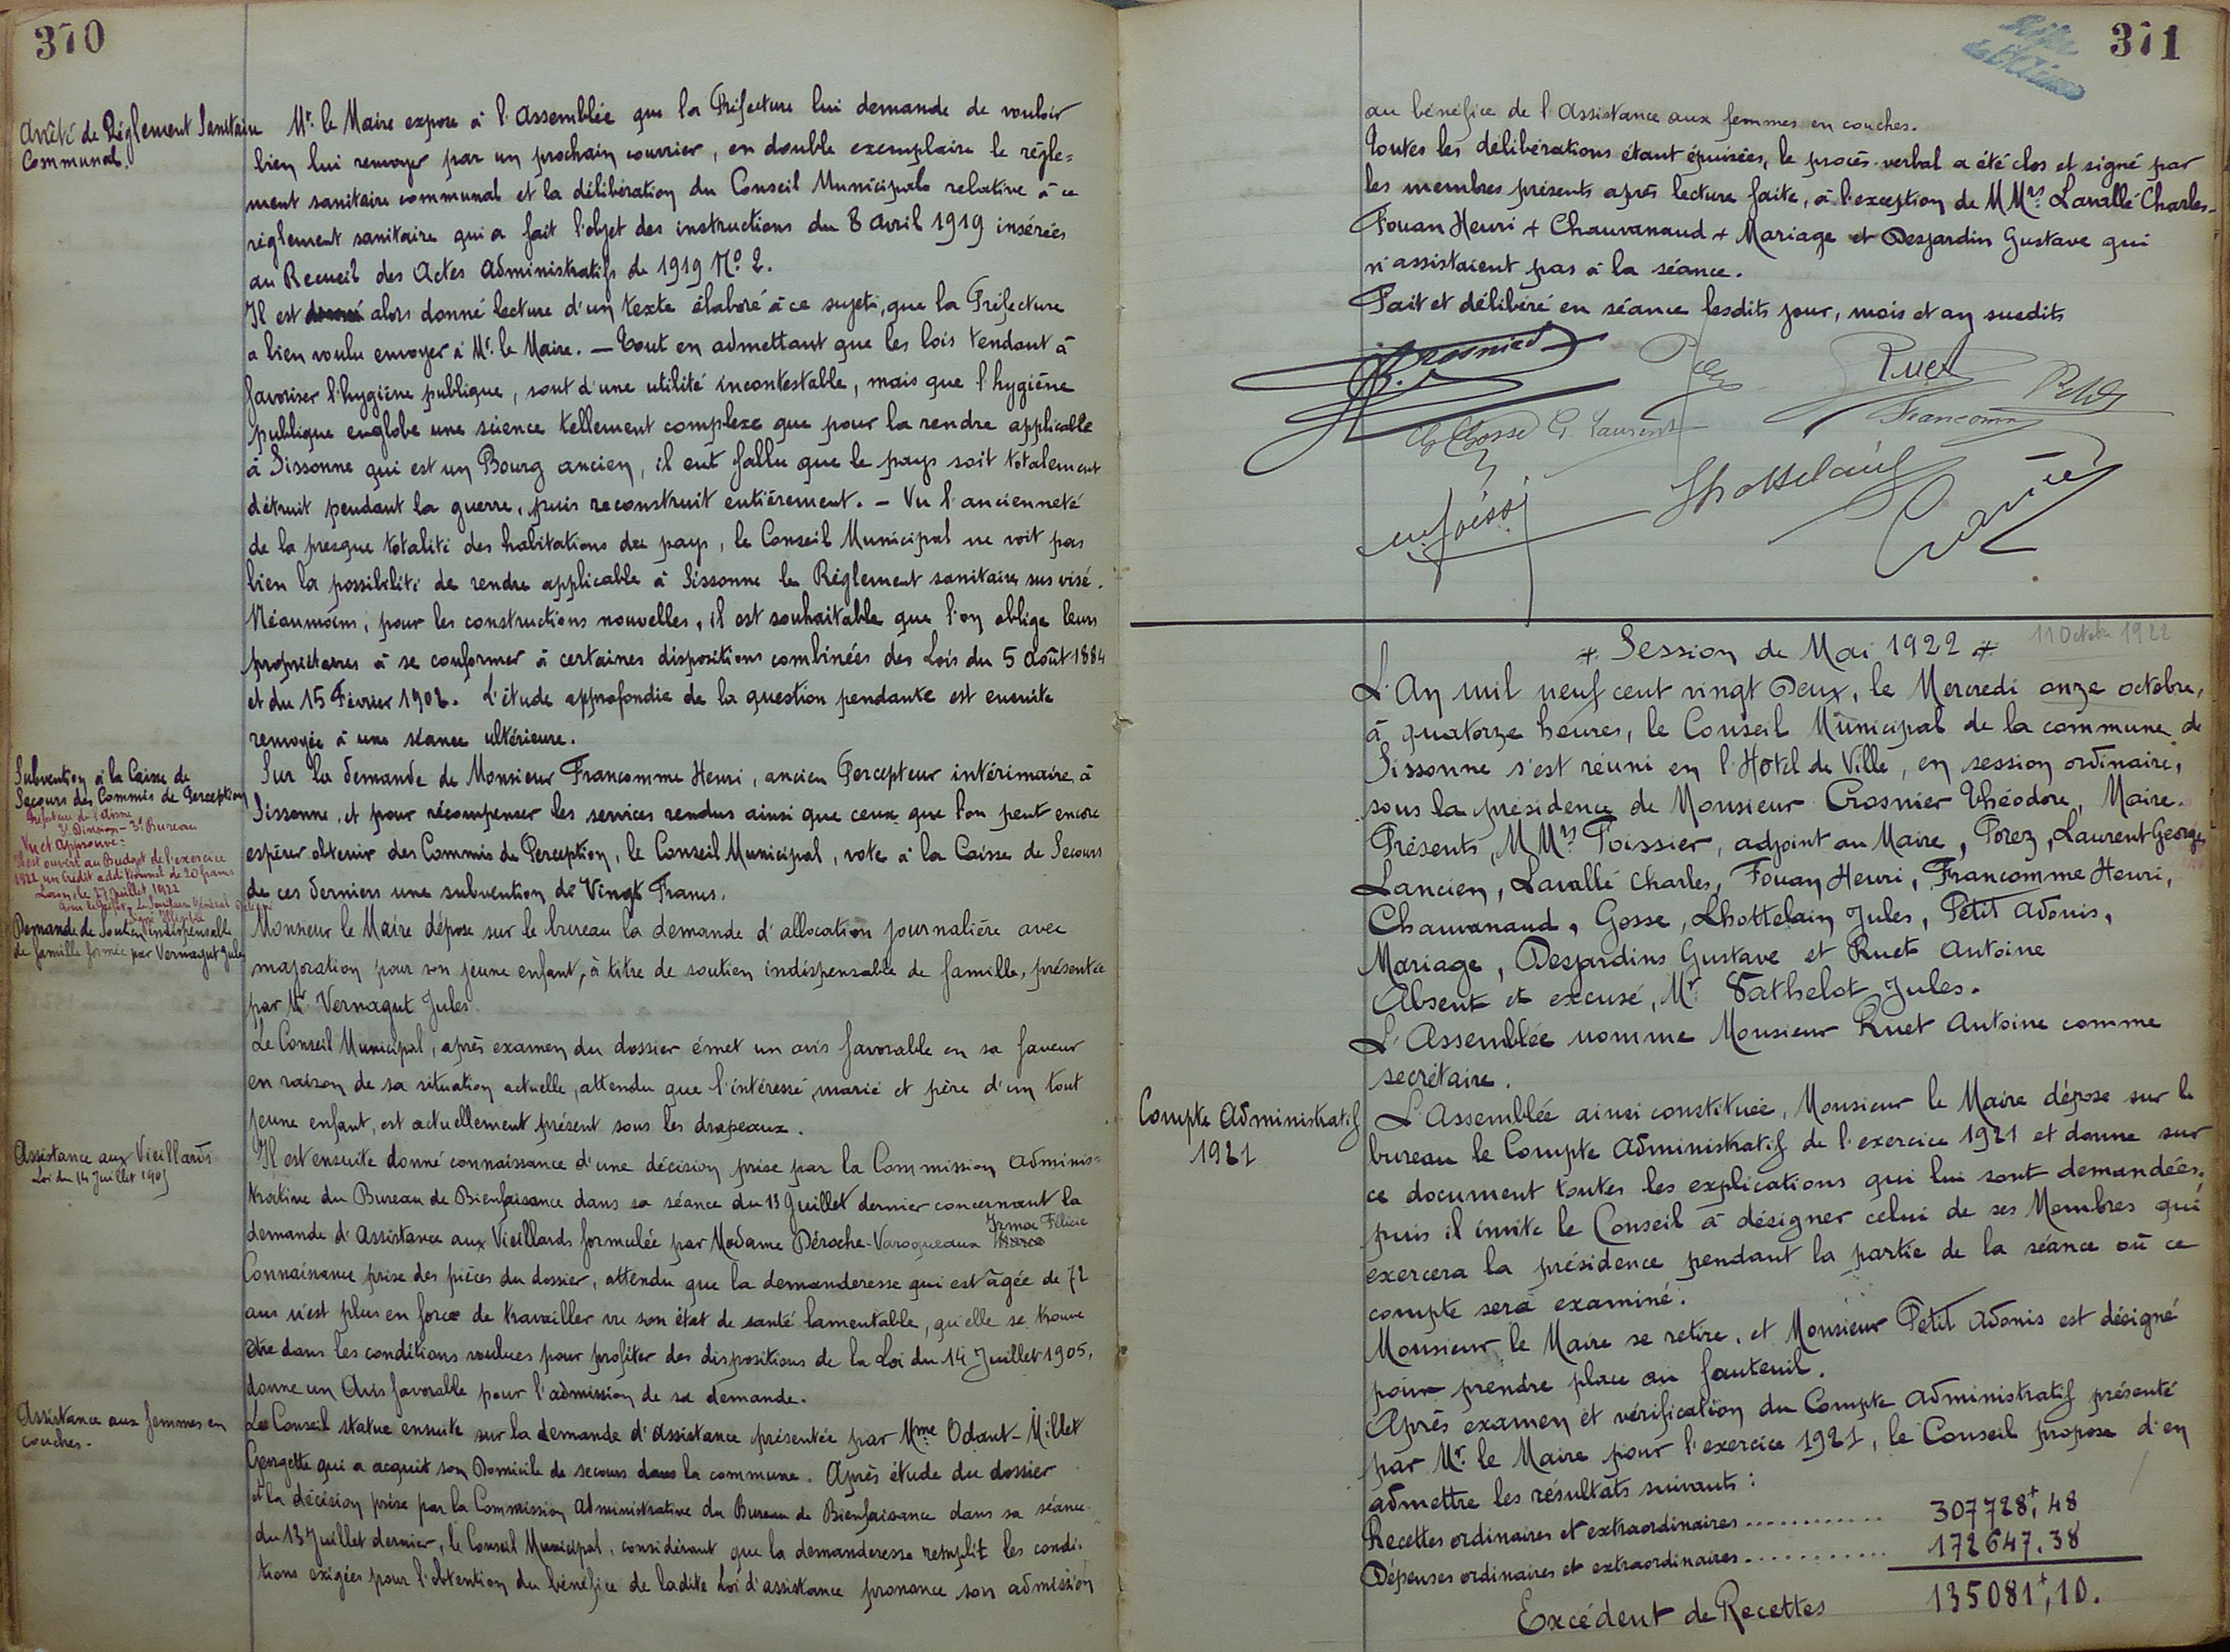 370
Arrêté de Réglement Sanitaire
Communal.
Mr. le Maire expose à l'Assemblée que la Préfecture lui demande de vouloir
bien lui renvoyer par un prochain courrier, en double exemplaire le régle=
ment sanitaire communal et la délibération du Conseil Municipal relative à ce
réglement sanitaire qui a fait l'objet des instructions du 8 avril 1919 insérées
au Recueil des Actes Administratifs de 1919 No. 2.
Il est alors donné lecture d'un texte élaboré à ce sujet, que la Préfecture
a bien voulu envoyer à Mr. le Maire. — Tout en admettant que les lois tendant à
favoriser l'hygiène publique, sont d'une utilité incontestable, mais que l'hygiène
publique englobe une science tellement complexe que pour la rendre applicable
à Sissonne qui est un Bourg ancien, il eut fallu que le pays soit totalement
détruit pendant la guerre, puis reconstruit entièrement. — Vu l'ancienneté
de la presque totalité des habitations du pays, le Conseil Municipal ne voit pas
bien la possibilité de rendre applicable à Sissonne le Réglement sanitaire sus visé.
Néanmoins, pour les constructions nouvelles, il est souhaitable que l'on oblige leurs
propriétaires à se conformer à certaines dispositions combinées des Lois du 5 Août 1884
et du 15 Février 1902. L'étude approfondie de la question pendante est ensuite
renvoyée à une séance ultérieure.
Subvention à la Caisse de
Secours des Commis de Perception
Préfecture de l'Aisne
3e Division - 3e Bureau
Vu et Approuvé:
Il est ouvert au Budget de l'exercice
1922 un Crédit additionnel de 20 francs
Laon, le 27 Juillet 1922
Pour le Préfet, Le Secrétaire Général
Sur la demande de Monsieur Francomme Henri, ancien Percepteur intérimaire à
Sissonne, et pour récompenser les services rendus ainsi que ceux que l'on peut encore
espérer obtenir des Commis de Perception, le Conseil Municipal, vote à la Caisse de Secours
de ces derniers une subvention de Vingt Francs.
Demande de Soutien indispensable
de famille formée par Vernagut Jules
Monsieur le Maire dépose sur le bureau la demande d'allocation journalière avec
majoration pour son jeune enfant, à titre de soutien indispensable de famille, présentée
par Mr Vernagut Jules.
Le Conseil Municipal, après examen du dossier émet un avis favorable en sa faveur
en raison de sa situation actuelle, attendu que l'intéressé marié et père d'un tout
jeune enfant, est actuellement présent sous les drapeaux.
Assistance aux Vieillards
Loi du 14 Juillet 1905
Il est ensuite donné connaissance d'une décision prise par la Commission Adminis=
trative du Bureau de Bienfaisance dans sa séance du 13 Juillet dernier concernant la
demande d'Assistance aux Vieillards formulée par Madame Déroche-Varoqueaux Irma Félicie
Connaissance prise des pièces du dossier, attendu que la demanderesse qui est âgée de 72
ans n'est plus en force de travailler vu son état de santé lamentable, qu'elle se trouve
être dans les conditions voulues pour profiter des dispositions de la Loi du 14 Juillet 1905,
donne un Avis favorable pour l'admission de sa demande.
Assistance aux femmes en
couches.
Le Conseil statue ensuite sur la demande d'assistance présentée par Mme Odant-Millet
Georgette qui a acquit son Domicile de secours dans la commune. Après étude du dossier
et la décision prise par la Commission Administrative du Bureau de Bienfaisance dans sa séance
du 13 Juillet dernier, le Conseil Municipal, considérant que la demanderesse remplit les condi-
tions exigées pour l'obtention du bénéfice de ladite Loi d'assistance prononce son admission
371
au bénéfice de l'Assistance aux femmes en couches.
Toutes les délibérations étant épuisées, le procès-verbal a été clos et signé par
les membres présents après lecture faite, à l'exception de MMrs. Lavallé Charles-
Fouan Henri + Chauvanaud + Mariage et Desjardin Gustave qui
n'assistaient pas à la séance.
Fait et délibéré en séance lesdits jour, mois et an susdits
Ruet
Francomme
Gosse G. Laurent
+ Session de Mai 1922 + 11 Octobre 1922
L'An mil neuf cent vingt Deux, le Mercredi onze octobre,
à quatorze heures, le Conseil Municipal de la commune de
Sissonne s'est réuni en l'Hôtel de Ville, en session ordinaire,
sous la présidence de Monsieur Crosnier Théodore, Maire.
Présents, MMrs Poissier, adjoint au Maire, Porez, Laurent Georges
Lancien, Lavallé Charles, Fouan Henri, Francomme Henri,
Chauvanaud, Gosse, Lhottelain Jules, Petit Adonis,
Mariage, Desjardins Gustave et Ruet Antoine
Absent et excusé, Mr. Vathelot Jules.
L'Assemblée nomme Monsieur Ruet Antoine comme
secrétaire.
Compte Administratif
1921
L'Assemblée ainsi constituée, Monsieur le Maire dépose sur le
bureau le Compte Administratif de l'exercice 1921 et donne sur
ce document toutes les explications qui lui sont demandées,
puis il invite le Conseil à désigner celui de ses Membres qui
exercera la présidence pendant la partie de la séance où ce
compte sera examiné.
Monsieur le Maire se retire, et Monsieur Petit Adonis est désigné
pour prendre place au fauteuil.
Après examen et vérification du Compte Administratif présenté
par Mr. le Maire pour l'exercice 1921, le Conseil propose d'en
admettre les résultats suivants:
Recettes ordinaires et extraordinaires ............ 307728f,48
Dépenses ordinaires et extraordinaires ............ 172647.38
Excédent de Recettes 135081f,10.